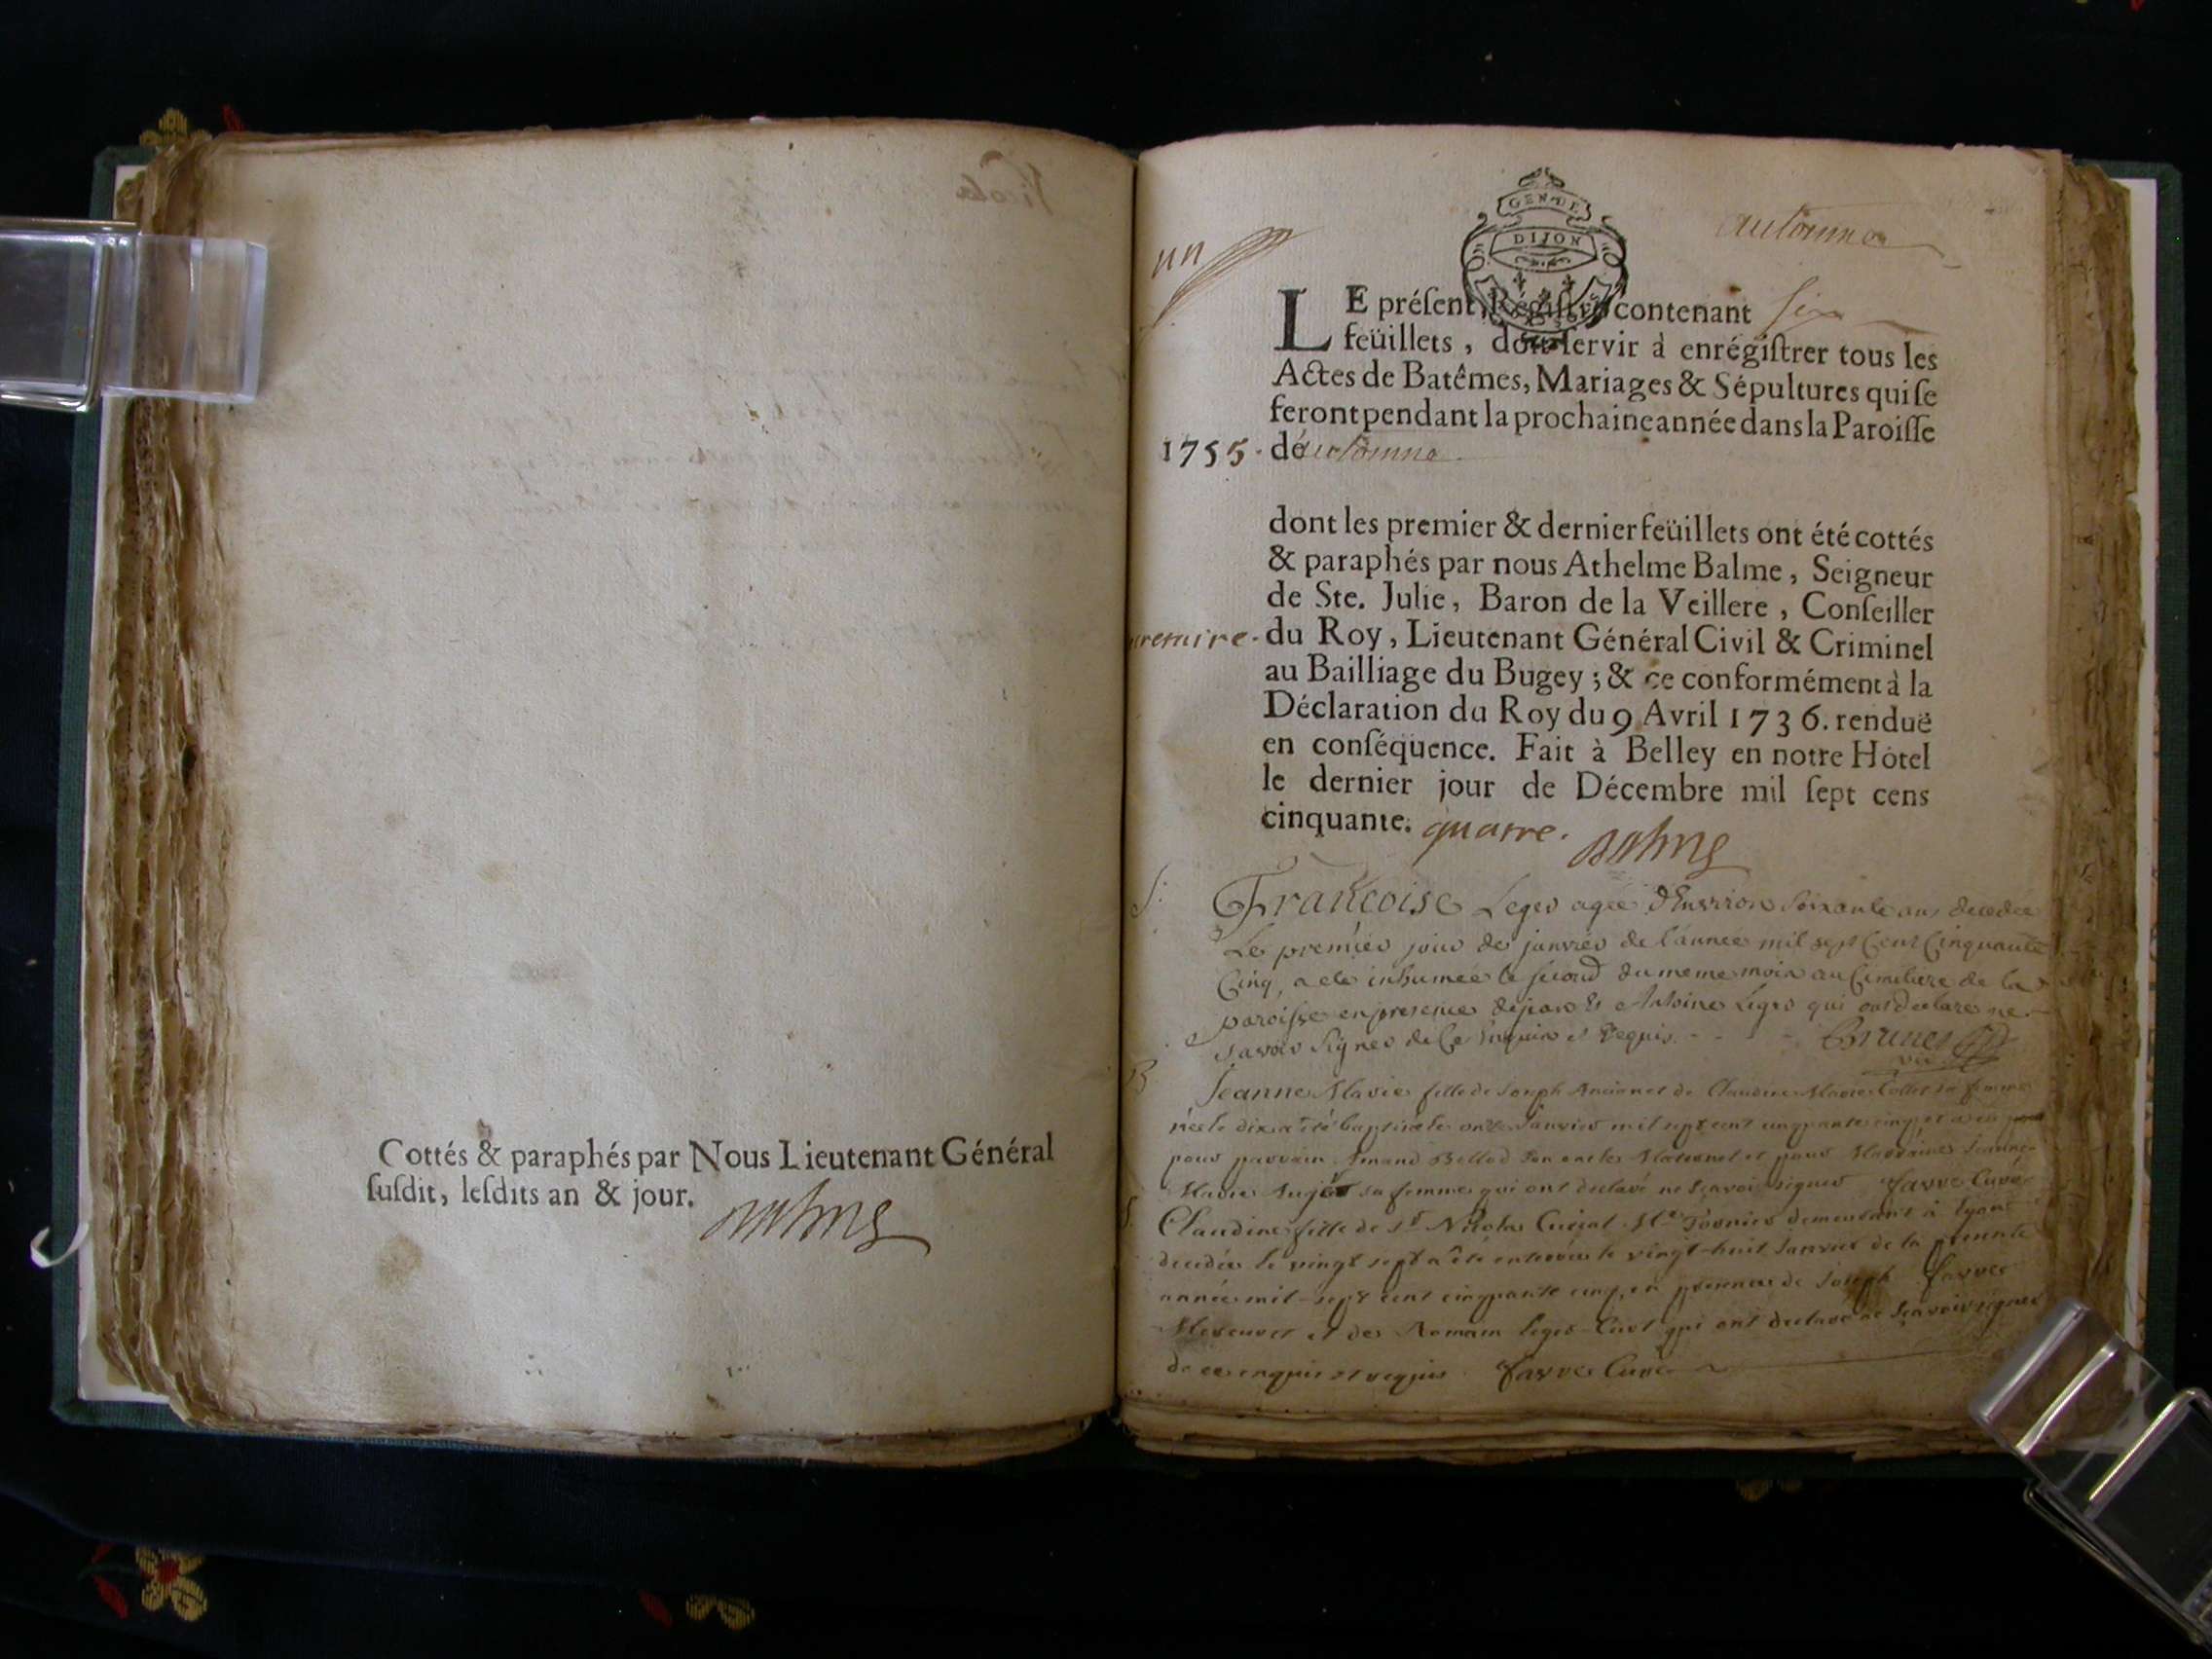 Cottés & paraphés par Nous Lieutenant Général
ſuſdit, leſdits an & jour.
un
GEN. DE
DIJON
LE préſent Régiſtre contenant ſix
feüillets, doit ſervir à enrégiſtrer tous les
Actes de Batêmes, Mariages & Sépultures qui ſe
feront pendant la prochaine année dans la Paroiſſe
1755. de
dont les premier & dernier feüillets ont été cottés
& paraphés par nous Athelme Balme, Seigneur
de Ste. Julie, Baron de la Veillere, Conſeiller
du Roy, Lieutenant Général Civil & Criminel
au Bailliage du Bugey; & ce conformément à la
Déclaration du Roy du 9 Avril 1736. renduë
en conſéquence. Fait à Belley en notre Hôtel
le dernier jour de Décembre mil ſept cens
cinquante. quatre. Balme
S.
Francoise Leger agée d'Environ Soixante ans decedée
Le premier jour de janvier de l'année mil sept Cent Cinquante
Cinq, a ete inhumée le second du meme mois au Cimetiere de la
paroisse en presence de Antoine Leger qui ont declare ne
savoir Signer de Ce Enquis et Requis. Brunet
B
Jeanne Marie fille de Joseph et de Claudine Marie Collet sa femme
née le dix a été baptisée le onze Janvier mil sept cent cinquante cinq et a eu
pour parrain Bellod son oncle Maternel et pour Marraine Jeanne
Marie sa femme qui ont declaré ne Sçavoir signer Favre Curé
S.
Claudine fille de Sr Nicolas demeurant à Lyon
decedée le vingt sept a été enterrée le vingt-huit Janvier de la presente
année mil-sept cent cinquante cinq, en presence de Joseph Favre
et de Romain Leger qui ont declaré ne Sçavoir signer
de ce enquis et requis Favre Curé